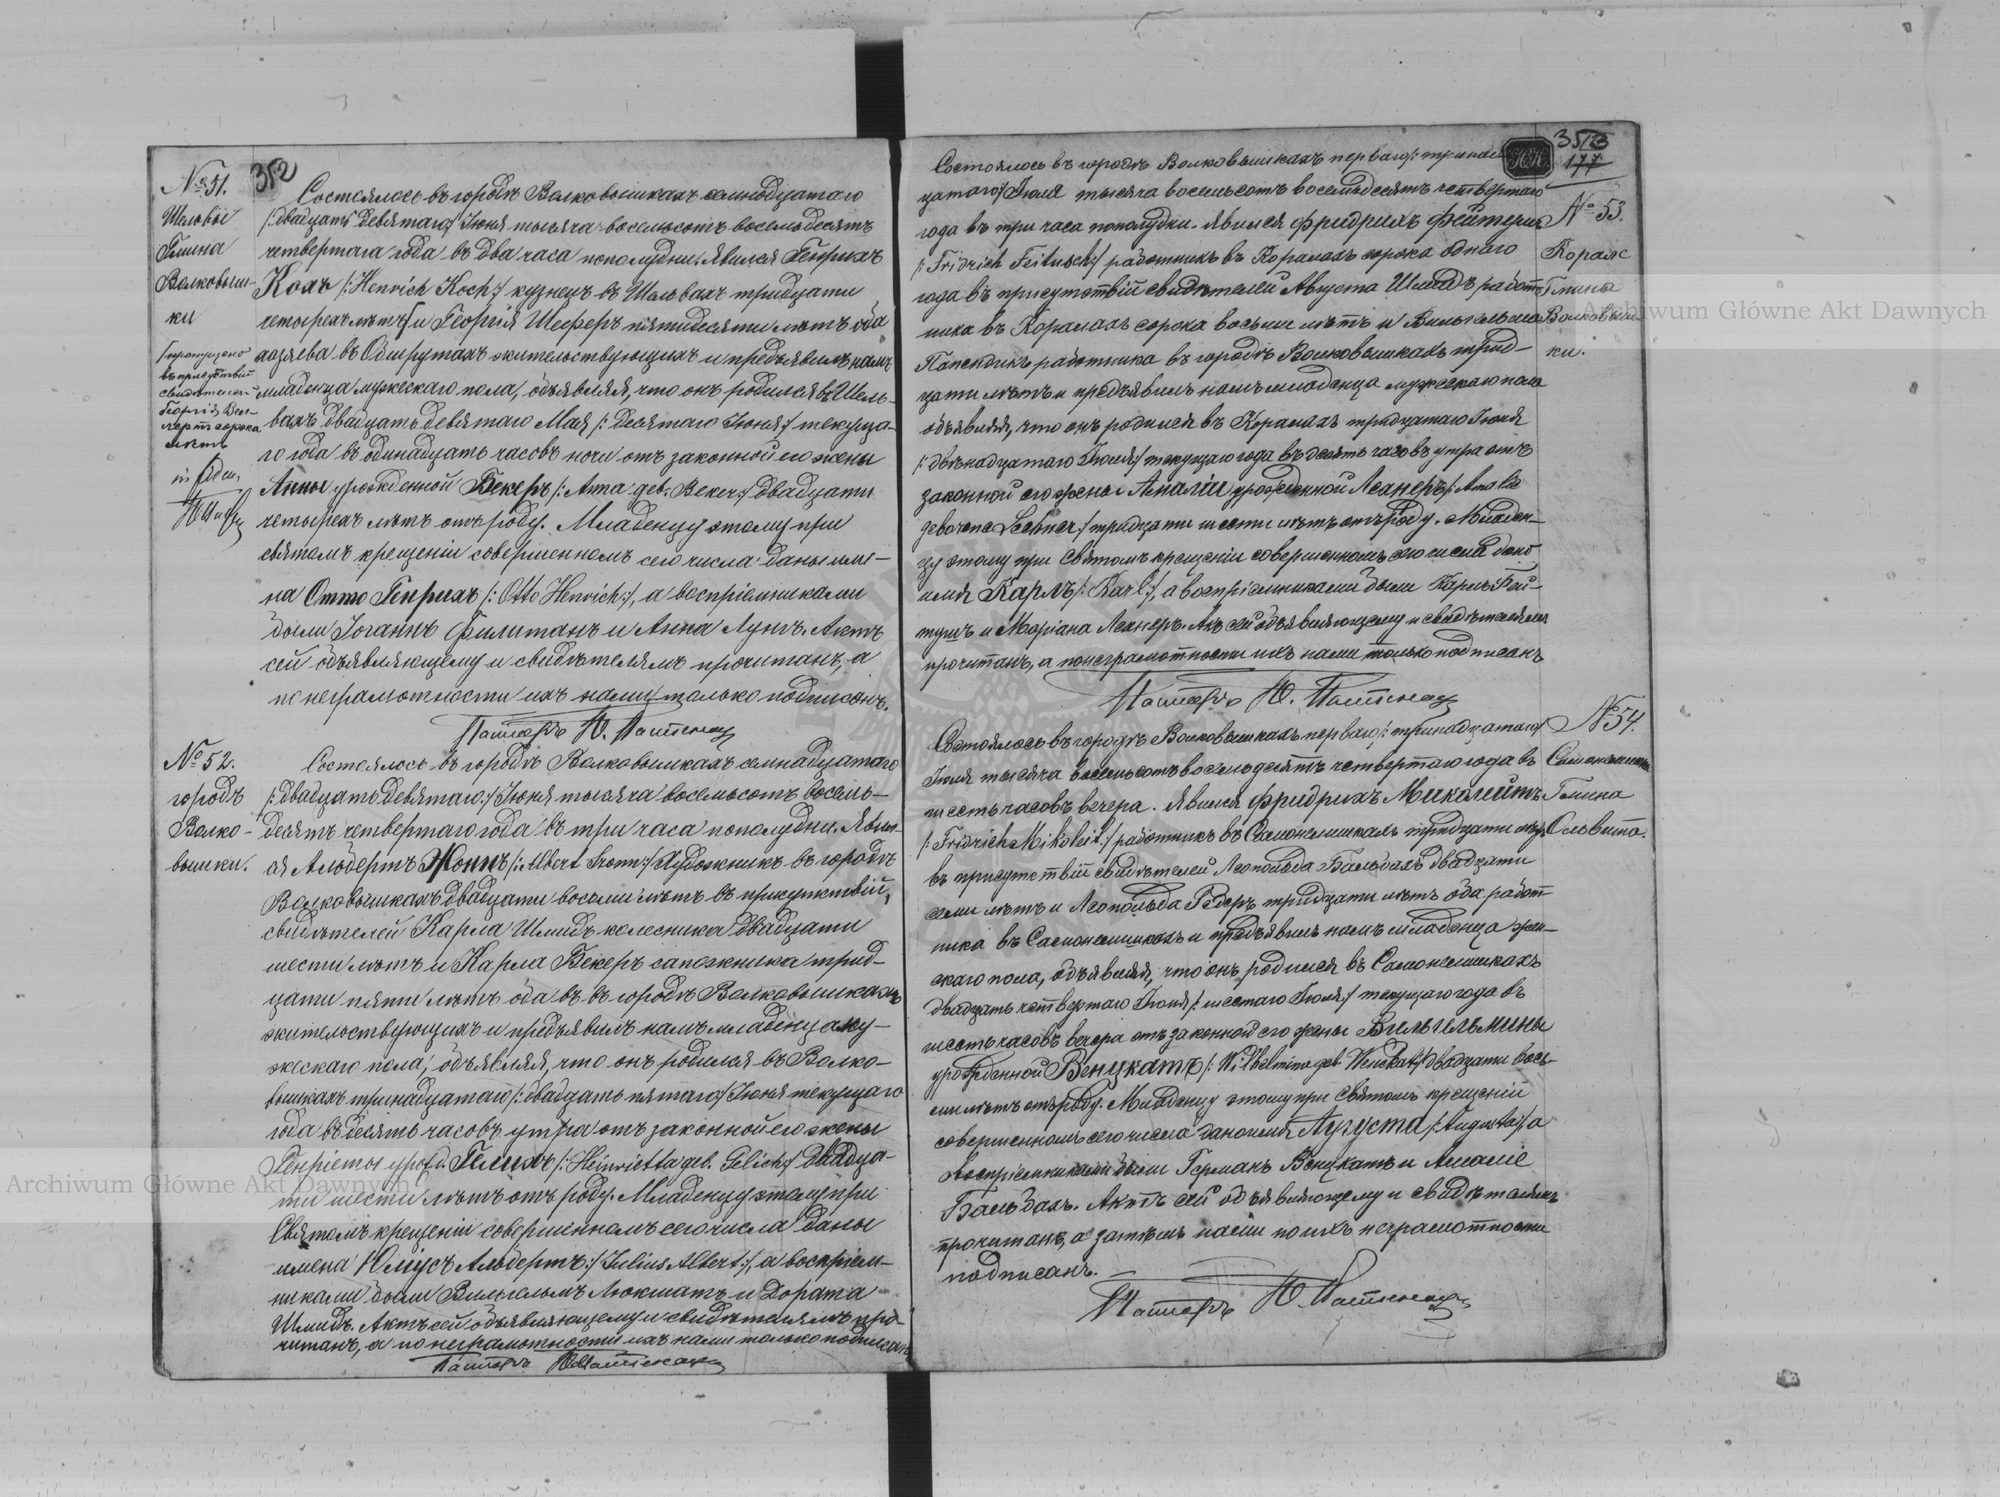 352
№ 51.
Шельвы
Гмина
Волковыш-
ки
пропущено
въ присутствіи
свидѣтелей
Георгія Вей-
герт сорока
лѣтъ
Состоялось въ городѣ Волковышкахъ семнадцатаго
/: двадцать девятаго :/ Іюня тысяча восемьсотъ восемьдесятъ
четвертаго года въ два часа пополудни. Явился Генрихъ
Кохъ /: Henrich Koch :/ кузнецъ въ Шельвахъ тридцати
четырехъ лѣтъ и Георгія Шеферъ пятидесяти лѣтъ оба
хозяева въ Обшрутахъ жительствующихъ и предъявилъ намъ
младенца мужескаго пола, объявляя, что онъ родился въ Шель-
вахъ двадцать девятаго Мая /: Десятаго Іюня :/ текуща-
го года въ одинадцать часовъ ночи отъ законной его жены
Анны урожденной Бекеръ /: Anna geb. Beker :/ двадцати
четырехъ лѣтъ отъ роду. Младенцу этому при
святомъ крещеніи совершенномъ сего числа даны име-
на Отто Генрихъ /: Otto Henrich :/, а воспріемниками
были Іоганнъ Филипанъ и Анна Лунг. Актъ
сей объявляющему и свидѣтелямъ прочитанъ, а
по неграмотности ихъ нами только подписанъ.
Пасторъ
№ 52.
городъ
Волко-
вышки.
Состоялось въ городѣ Волковышкахъ семнадцатаго
/: двадцать девятаго :/ Іюня тысяча восемьсотъ восемь-
десятъ четвертаго года въ три часа пополудни. Явил-
ся Альбертъ /: Albert :/ Художникъ въ городѣ
Волковышкахъ двадцати восьми лѣтъ въ присутствіи
свидѣтелей Карла Шмидъ колесника двадцати
шести лѣтъ и Карла Бекеръ сапожника трид-
цати пяти лѣтъ оба въ въ городѣ Волковышкахъ
жительствующихъ и предъявилъ намъ младенца му-
жескаго пола, объявляя, что онъ родился въ Волко-
вышкахъ тринадцатаго /: двадцать пятаго :/ Іюня текущаго
года въ десять часовъ утра отъ законной его жены
Генріеты урожд. Гелихъ /: Heinrietta geb. Gelich :/ двадца-
ти шести лѣтъ отъ роду. Младенцу этому при
Святомъ крещеніи совершенномъ сего числа даны
имена Юліусъ Альбертъ :/ Julius Albert :/, а воспріем-
никами были Вильгельмъ Люкшатъ и Дората
Шмидъ. Актъ сей объявляющему и свидѣтелямъ про-
читанъ, а по неграмотности ихъ нами только подписанъ
Пасторъ
НК
353
177
№ 53.
Корале
Гмина
Волковыш-
ки.
Состоялось въ городѣ Волковышкахъ перваго /: тринад-
цатаго :/ Іюля тысяча восемьсотъ восемьдесятъ четвертаго
года въ три часа пополудни. Явился Фридрихъ Фейтушъ
/: Fridrich Feitusch :/ работникъ въ Коралахъ сорока однаго
года въ присутствіи свидѣтелей Августа Шмидъ работ-
ника въ Коралахъ сорока восьми лѣтъ и Вильгельма
Папендикъ работника въ городѣ Волковышкахъ трид-
цати лѣтъ и предъявилъ намъ младенца мужескаго пола
объявляя, что онъ родился въ Коралахъ тридцатаго Іюня
/: двѣнадцатаго Іюля :/ текущаго года въ десять часовъ утра отъ
законной его жены Амаліи урожденной Лехнеръ /: Amalia
геборене Lechner :/ тридцати шести лѣтъ отъ роду. Младен-
цу этому при Святомъ крещеніи совершенномъ сего числа дано
имя Карлъ /: Karl :/, а воспріемниками были Карлъ Фей-
тушъ и Маріана Лехнеръ. Актъ сей объявляющему и свидѣтелямъ
прочитанъ, а по неграмотности ихъ нами только подписанъ
Пасторъ
№ 54.
Гмина
Ольвита.
Состоялось въ городѣ Волковышкахъ перваго /: тринадцатаго :/
Іюля тысяча восемьсотъ восемьдесятъ четвертаго года въ
шесть часовъ вечера. Явился Фридрихъ Миколейтъ
/: Fridrich Mikoleit :/ работникъ въ Самонелишкахъ тридцати лѣтъ
въ присутствіи свидѣтелей Леопольда Бальбахъ двадцати
семи лѣтъ и Леопольда Редеръ тридцати лѣтъ оба работ-
ника въ Самонелишкахъ и предъявилъ намъ младенца жен-
скаго пола, объявляя, что онъ родился въ Самонелишкахъ
двадцать четвертаго Іюня /: шестаго Іюля :/ текущаго года въ
шесть часовъ вечера отъ законной его жены Вильгельмины
урожденной Венцкатъ /: Wilhelmina geb. Wenckat :/ двадцати вось-
ми лѣтъ отъ роду. Младенцу этому при Святомъ крещеніи
совершенномъ сего числа дано имя Августа /: Augusta :/, а
воспріемниками были Германъ Венцкатъ и Амаліе
Бальбахъ. Актъ сей объявляющему и свидѣтелямъ
прочитанъ, а затѣмъ нами по ихъ неграмотности
подписанъ.
Пасторъ
Archiwum Główne Akt Dawnych
Archiwum Główne Akt Dawnych